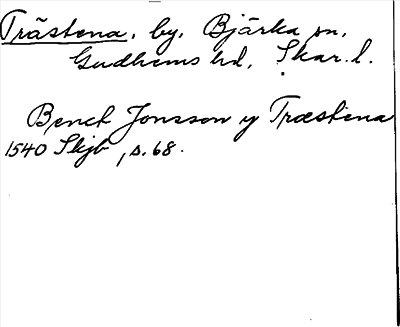 Trästena, by, Bjärka sn,
Gudhems hd, Skar. l.
Benct Jonsson y Træstena
1540 Skjb, s. 68.